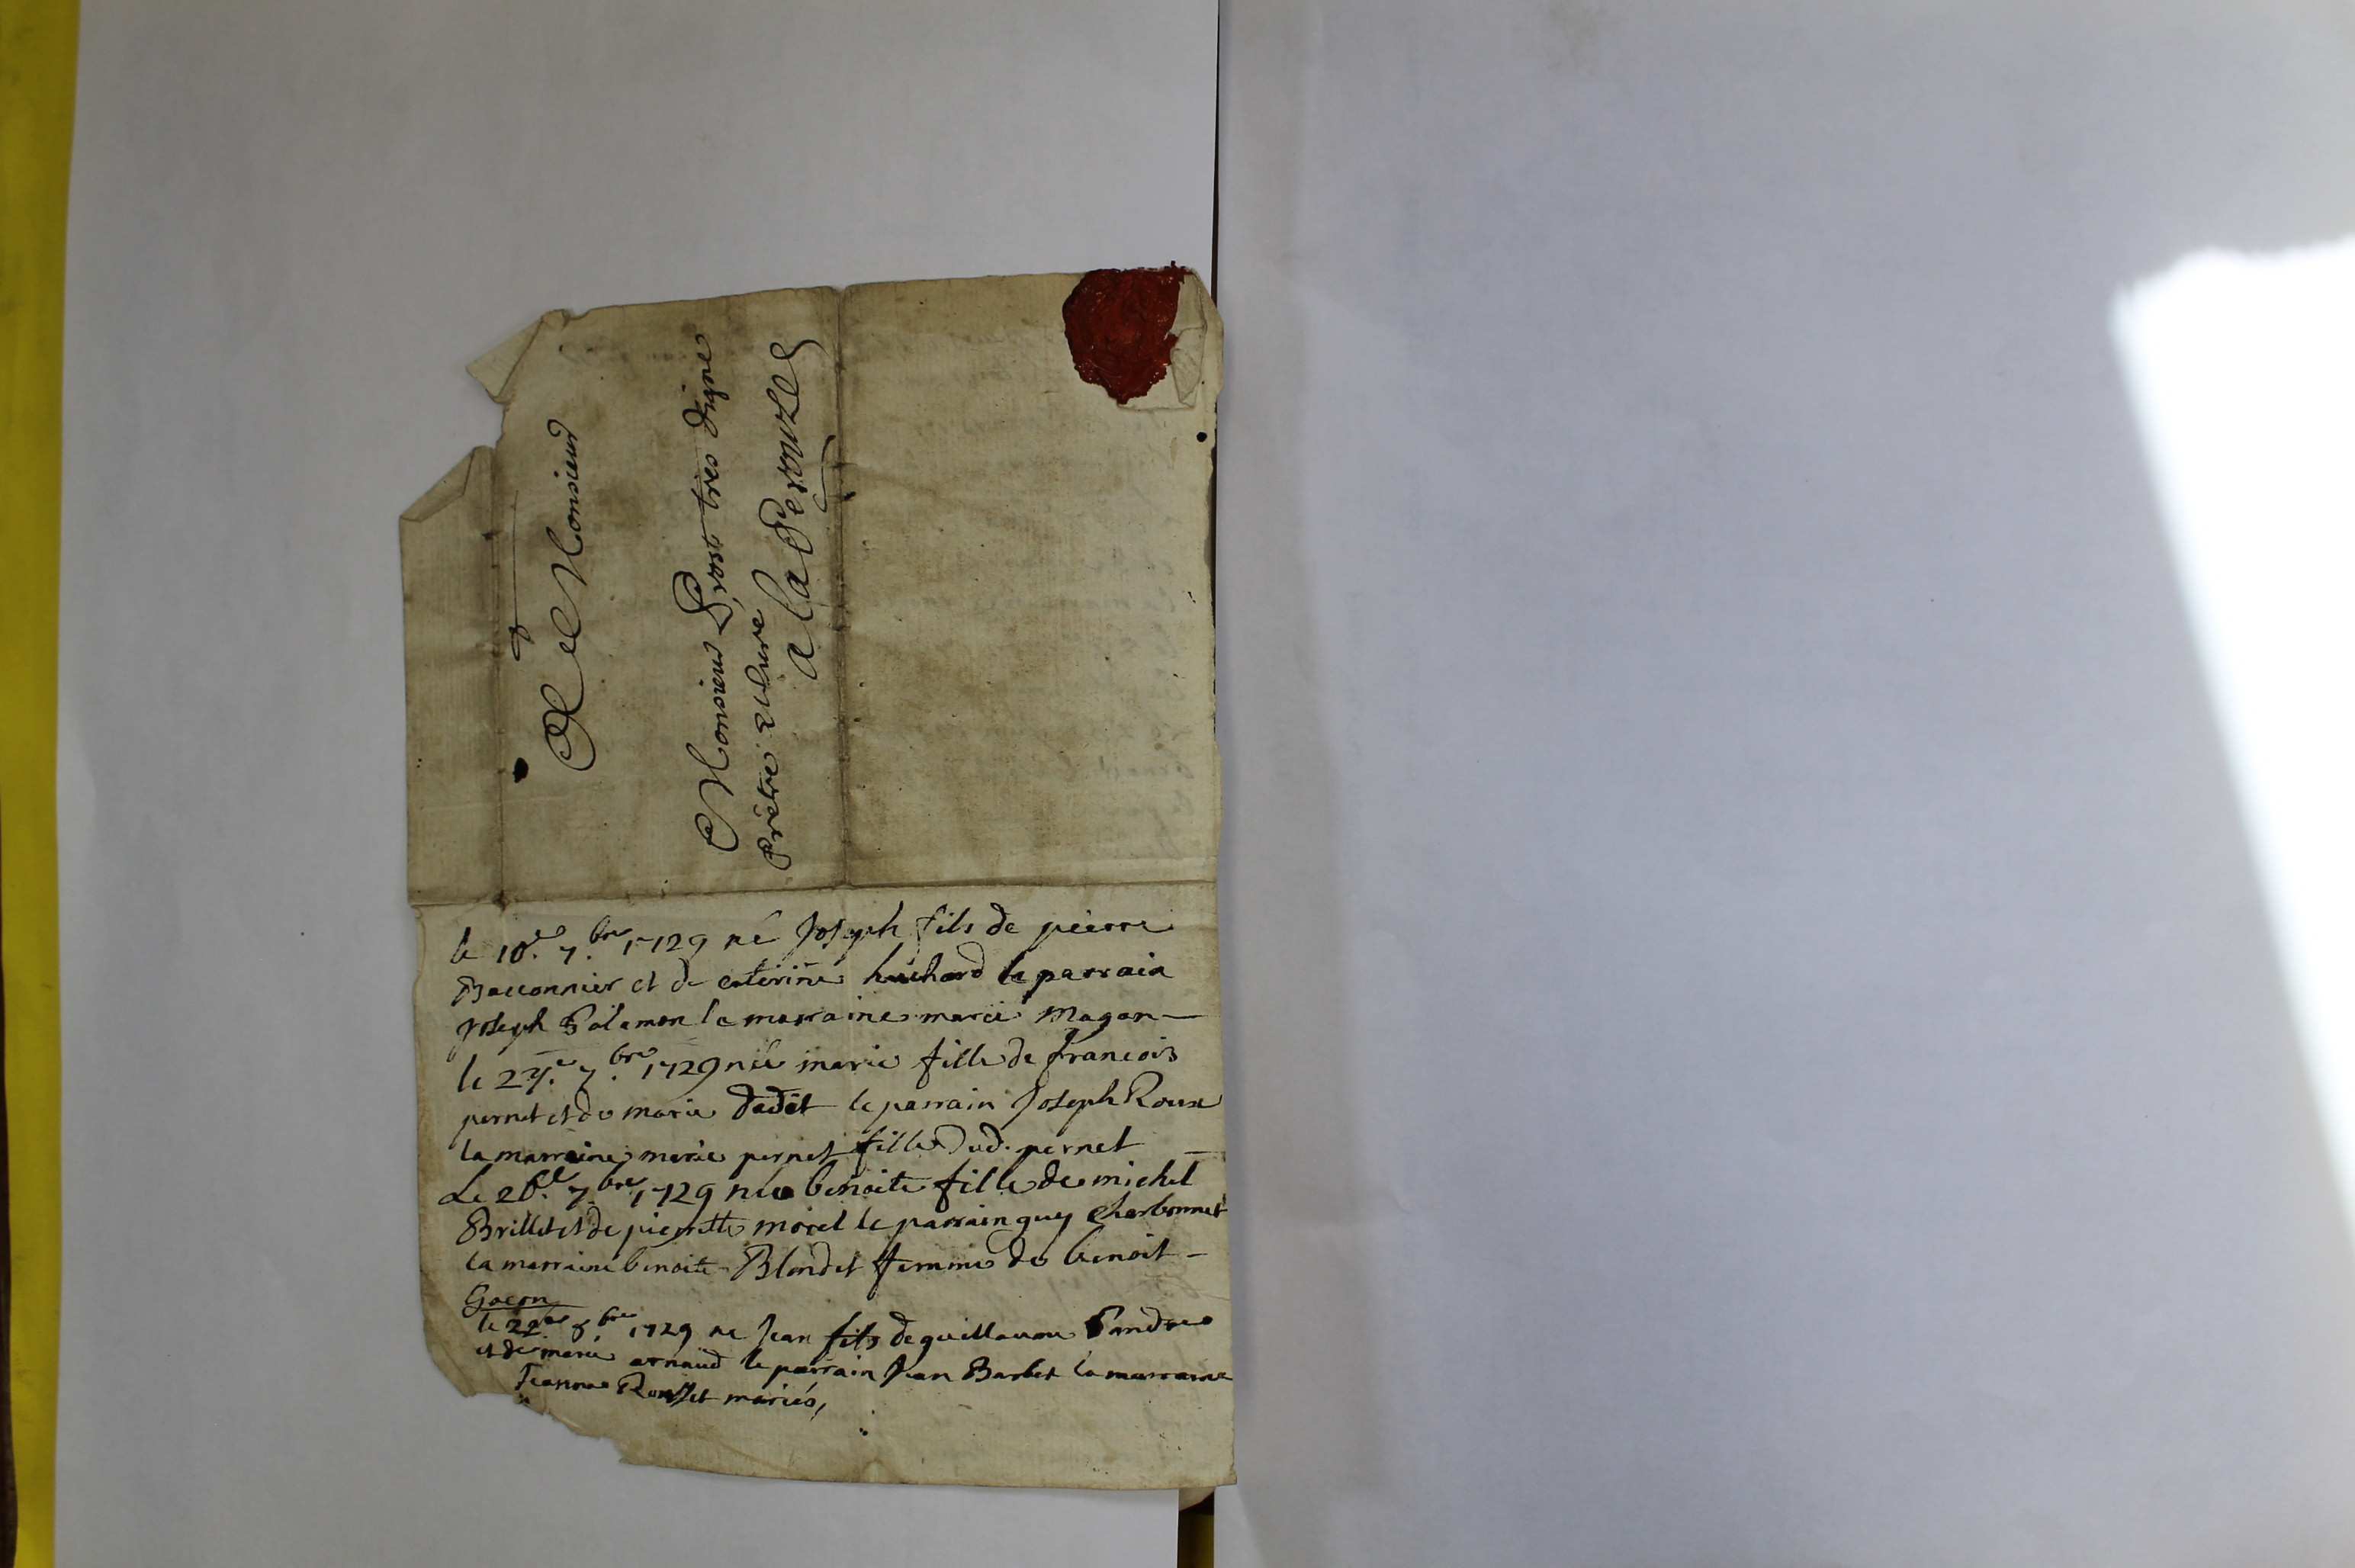 A Monsieur
Monsieur Prost tres digne
prêtre & Curé
a la Perouze
le 10.e 7.bre 1729 né Joseph fils de pierre
Baconnier et de caterine huchard le parrain
Joseph Salamon la marraine marie Magon
le 27.e 7.bre 1729 née marie fille de francois
pernet et de marie dedet le parrain Joseph Roux
la marraine marie pernet fille dud. pernet
Le 26.e 7.bre 1729 née benoite fille de michel
Brillet et de pierrette morel le parrain guy Charbonnet
la marraine benoite Blondet femme de benoit
Gocon
le 22.e 8.bre 1729 né Jean fils de guillaume
et de marie arnaud le parrain Jean Barbet la marraine
Jeanne Rousset mariés,